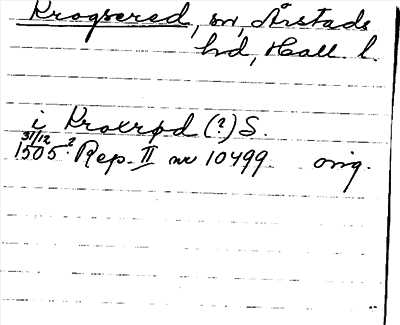 Krogsered, sn, Årstads
hd, Hall l.
i Kroxrød (?) S.
31/12
1505? Rep. II nr 10499. orig.